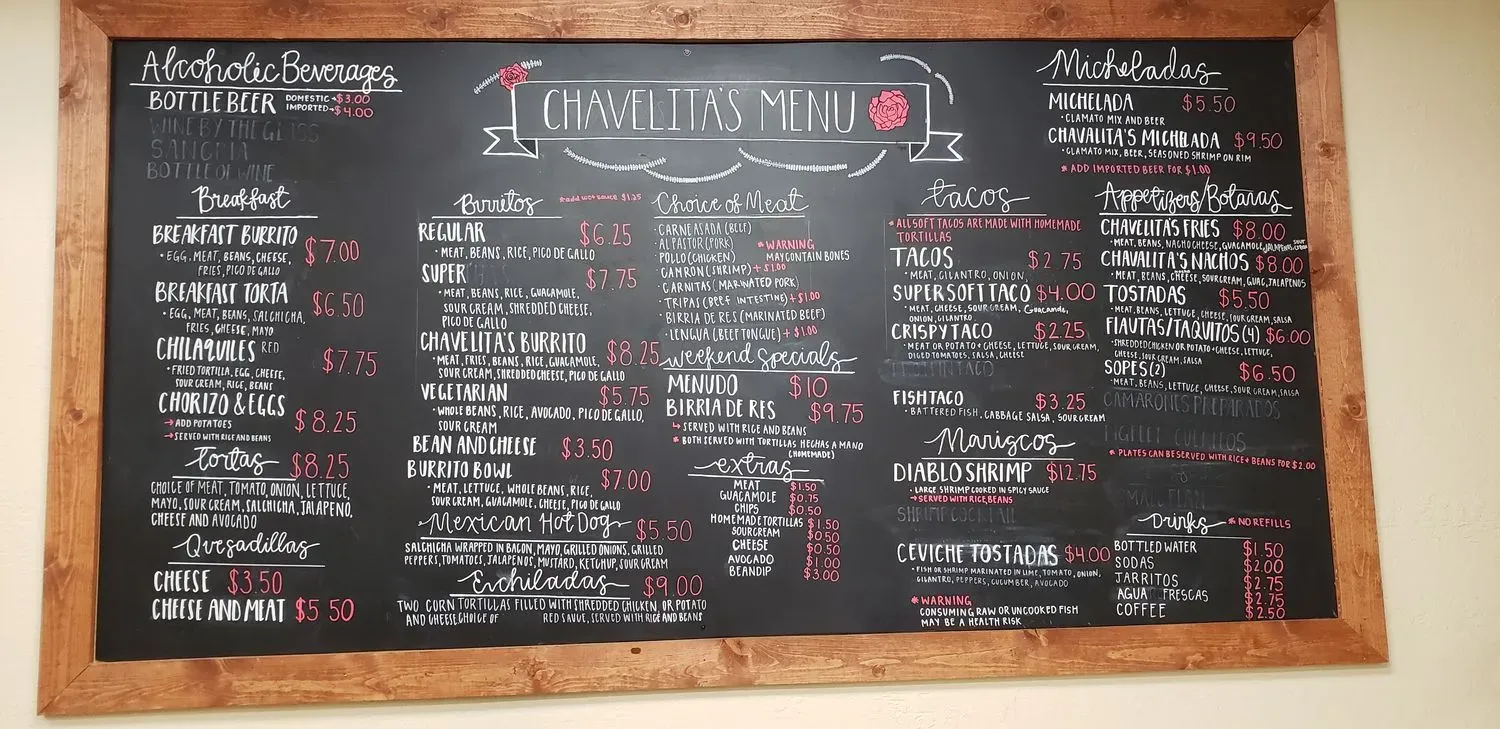 Alcoholic Beverages
BOTTLE BEER DOMESTIC→$3.00
IMPORTED→$4.00
WINE BY THE GLASS
SANGRIA
BOTTLE OF WINE
CHAVELITA'S MENU
Micheladas
MICHELADA $5.50
·CLAMATO MIX AND BEER
CHAVALITA'S MICHELADA $9.50
·CLAMATO MIX, BEER, SEASONED SHRIMP ON RIM
* ADD IMPORTED BEER FOR $1.00
Breakfast
BREAKFAST BURRITO $7.00
·EGG, MEAT, BEANS, CHEESE,
FRIES, PICO DE GALLO
BREAKFAST TORTA $6.50
·EGG, MEAT, BEANS, SALCHICHA,
FRIES, CHEESE, MAYO
CHILAQUILES RED $7.75
·FRIED TORTILLA, EGG, CHEESE,
SOUR CREAM, RICE, BEANS
CHORIZO & EGGS $8.25
→ADD POTATOES
→SERVED WITH RICE AND BEANS
Tortas $8.25
CHOICE OF MEAT, TOMATO, ONION, LETTUCE,
MAYO, SOUR CREAM, SALCHICHA, JALAPEÑO,
CHEESE AND AVOCADO
Quesadillas
CHEESE $3.50
CHEESE AND MEAT $5 50
Burritos *add wet sauce $1.25
REGULAR $6.25
·MEAT, BEANS, RICE, PICO DE GALLO
SUPER $7.75
·MEAT, BEANS, RICE, GUACAMOLE,
SOUR CREAM, SHREDDED CHEESE,
PICO DE GALLO
CHAVELITA'S BURRITO $8.25
·MEAT, FRIES, BEANS, RICE, GUACAMOLE,
SOUR CREAM, SHREDDED CHEESE, PICO DE GALLO
VEGETARIAN $5.75
·WHOLE BEANS, RICE, AVOCADO, PICO DE GALLO,
SOUR CREAM
BEAN AND CHEESE $3.50
BURRITO BOWL $7.00
·MEAT, LETTUCE, WHOLE BEANS, RICE,
SOUR CREAM, GUACAMOLE, CHEESE, PICO DE GALLO
Mexican Hot Dog $5.50
SALCHICHA WRAPPED IN BACON, MAYO, GRILLED ONIONS, GRILLED
PEPPERS, TOMATOES, JALAPENOS, MUSTARD, KETCHUP, SOUR CREAM
Enchiladas $9.00
TWO CORN TORTILLAS FILLED WITH SHREDDED CHICKEN OR POTATO
AND CHEESE, CHOICE OF RED SAUCE, SERVED WITH RICE AND BEANS
Choice of Meat
·CARNE ASADA (BEEF)
·AL PASTOR (PORK)
·POLLO (CHICKEN)
*WARNING
MAY CONTAIN BONES
·CAMRON (SHRIMP) + $1.00
·CARNITAS (MARINATED PORK)
·TRIPAS (BEEF INTESTINE) + $1.00
·BIRRIA DE RES (MARINATED BEEF)
·LENGUA (BEEF TONGUE) + $1.00
Weekend Specials
MENUDO $10
BIRRIA DE RES $9.75
↳SERVED WITH RICE AND BEANS
* BOTH SERVED WITH TORTILLAS HECHAS A MANO
(HOMEMADE)
extras
MEAT $1.50
GUACAMOLE $0.75
CHIPS $0.50
HOMEMADE TORTILLAS $1.50
SOUR CREAM $0.50
CHEESE $0.50
AVOCADO $1.00
BEAN DIP $3.00
tacos
*ALL SOFT TACOS ARE MADE WITH HOMEMADE
TORTILLAS
TACOS $2.75
·MEAT, CILANTRO, ONION
SUPER SOFT TACO $4.00
·MEAT, CHEESE, SOUR CREAM, Guacamole,
ONION, CILANTRO
CRISPY TACO $2.25
·MEAT OR POTATO + CHEESE, LETTUCE, SOUR CREAM,
DICED TOMATOES, SALSA, CHEESE
FISH TACO $3.25
·BATTERED FISH, CABBAGE, SALSA, SOUR CREAM
Mariscos
DIABLO SHRIMP $12.75
·LARGE SHRIMP COOKED IN SPICY SAUCE
→SERVED WITH RICE, BEANS
SHRIMP COCKTAIL
CEVICHE TOSTADAS $4.00
·FISH OR SHRIMP MARINATED IN LIME, TOMATO, ONION,
CILANTRO, PEPPERS, CUCUMBER, AVOCADO
*WARNING
CONSUMING RAW OR UNCOOKED FISH
MAY BE A HEALTH RISK
Appetizers/Botanas
CHAVELITA'S FRIES $8.00
·MEAT, BEANS, NACHO CHEESE, GUACAMOLE, JALAPENOS, SOUR CREAM
CHAVALITA'S NACHOS $8.00
·MEAT, BEANS, CHEESE, SOUR CREAM, GUAC, JALAPENOS
TOSTADAS $5.50
·MEAT, BEANS, LETTUCE, CHEESE, SOUR CREAM, SALSA
FLAUTAS/TAQUITOS (4) $6.00
·SHREDDED CHICKEN OR POTATO + CHEESE, LETTUCE,
CHEESE, SOUR CREAM, SALSA
SOPES (2) $6.50
·MEAT, BEANS, LETTUCE, CHEESE, SOUR CREAM, SALSA
CAMARONES PREPARADOS
* PLATES CAN BE SERVED WITH RICE + BEANS FOR $2.00
Drinks *NO REFILLS
BOTTLED WATER $1.50
SODAS $2.00
JARRITOS $2.75
AGUA FRESCAS $2.75
COFFEE $2.50